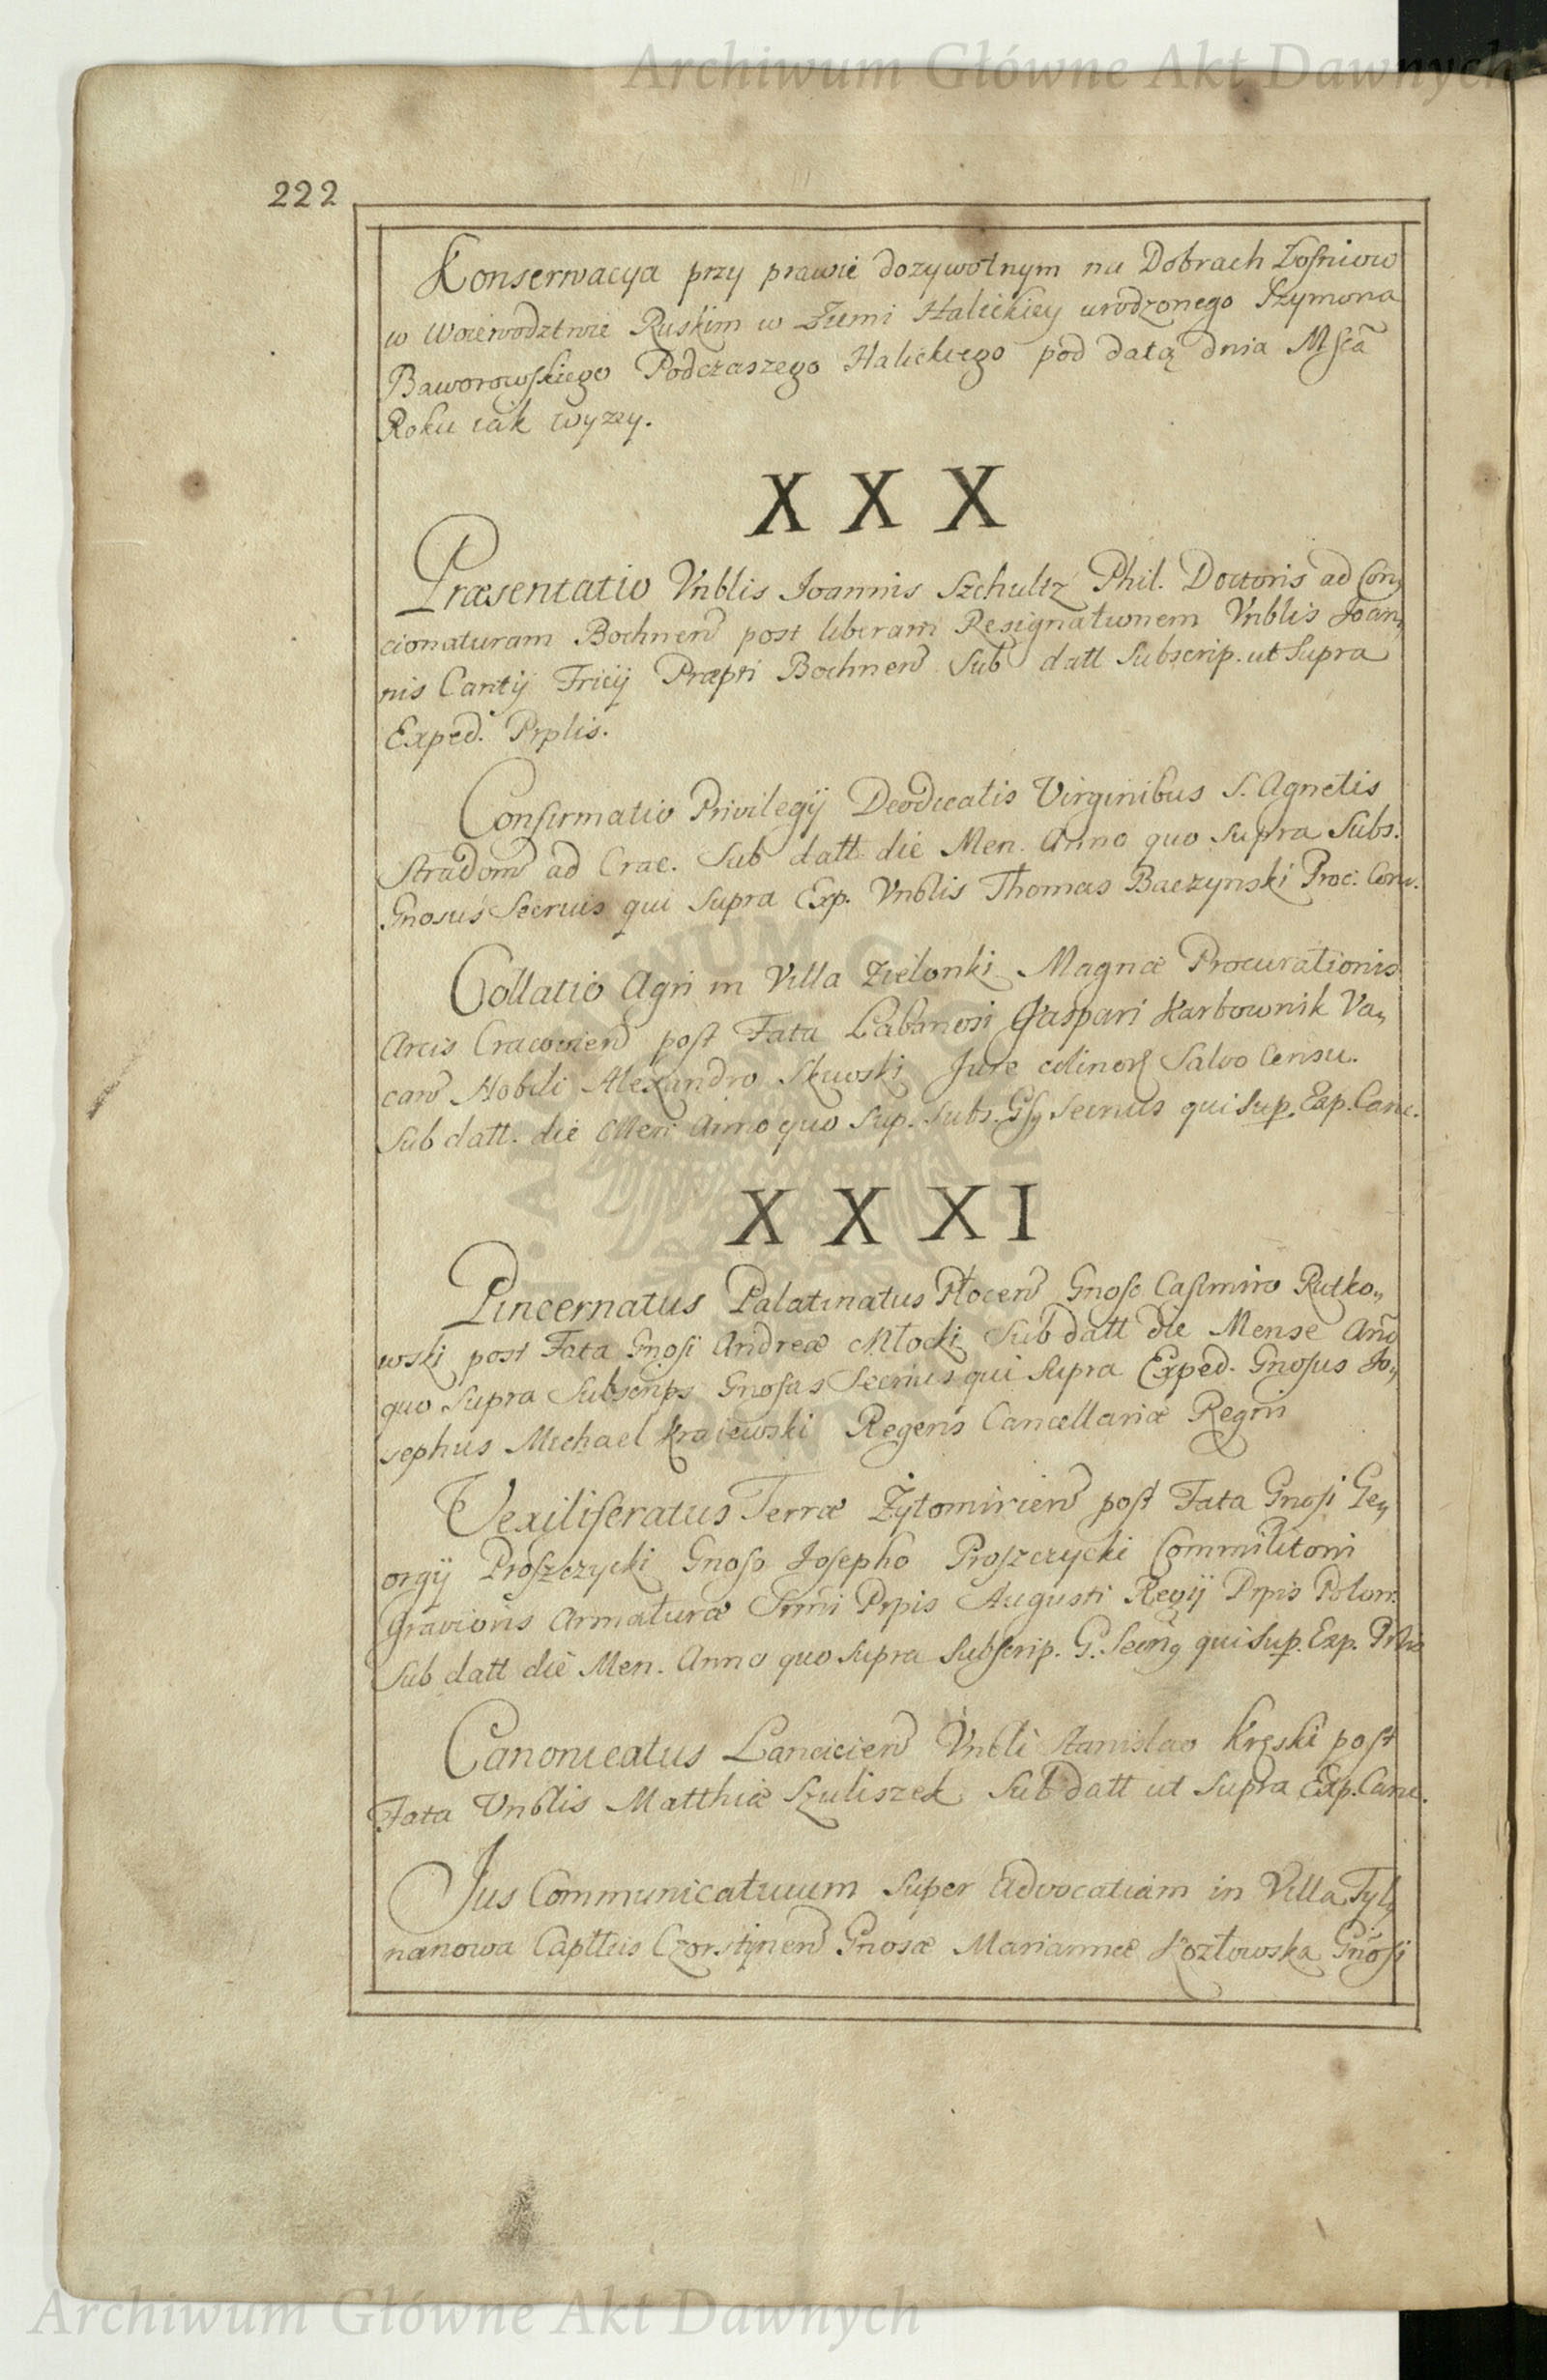 Archiwum Główne Akt Dawnych
222
Konserwacya przy prawie dozywotnym na Dobrach Łosniow
w Woiewodztwie Ruskim w Ziemi Halickiey urodzonego Szymona
Baworowskiego Podczaszego Halickiego pod datą dnia Mscã
Roku iak wyzey.
X X X
Præsentatio Vnblis Joannis Szchultz Phil. Doctoris ad Con„
cionaturam Bochnen̄ post liberam Resignationem Vnblis Joan„
nis Cantij Fricij Præpti Bochnen̄ Sub datt Subscrip. ut Supra
Exped. Prplis.
Confirmatio Privilegij Deodicatis Virginibus S. Agnetis
Stradom̄ ad Crac. Sub datt die Men. Anno quo Supra Subs.
Gnosus Secrius qui Supra Exp. Vnblis Thomas Baczynski Proc. Canc.
Collatio Agri in Villa Zielonki Magnæ Procurationis
Arcis Cracovien̄ post Fata Laboriosi Gaspari Karbownik Va„
can̄ Nobili Alexandro Skuoski Jure Salvo Censu.
Sub datt. die Men Anno quo Sup. Subs. Gsg Secrius qui Sup. Exp. Canc.
X X X I
Pincernatus Palatinatus Płocen̄ Gnoso Casimiro Rutko„
wski post Fata Gnosi Andreæ Młocki Sub datt die Mense Anõ
quo Supra Subscrips Gnosus Secrius qui Supra Exped. Gnosus Jo„
sephus Michael Kraiewski Regens Cancellariæ Regni
Vexiliferatus Terræ Żytomirien̄ post Fata Gnosi Ge„
orgij Proszczycki Gnoso Josepho Proszczycki Commilitoni
Gravioris Armaturæ Srmi Prpis Augusti Regij Prpis Polon.
Sub datt die Men. Anno quo Supra Subscrip. G. Secrig qui Sup. Exp. Prlis
Canonicatus Lancicien̄ Vnbli Stanislao Kręski post
Fata Vnblis Matthiæ Szuliszek Sub datt ut Supra Exp. Canc.
Jus Communicativum Super Advocatiam in Villa Tyl„
manowa Capttus Czorstynen̄ Gnosæ Mariannæ Kozłowska Gnosi
Archiwum Główne Akt Dawnych